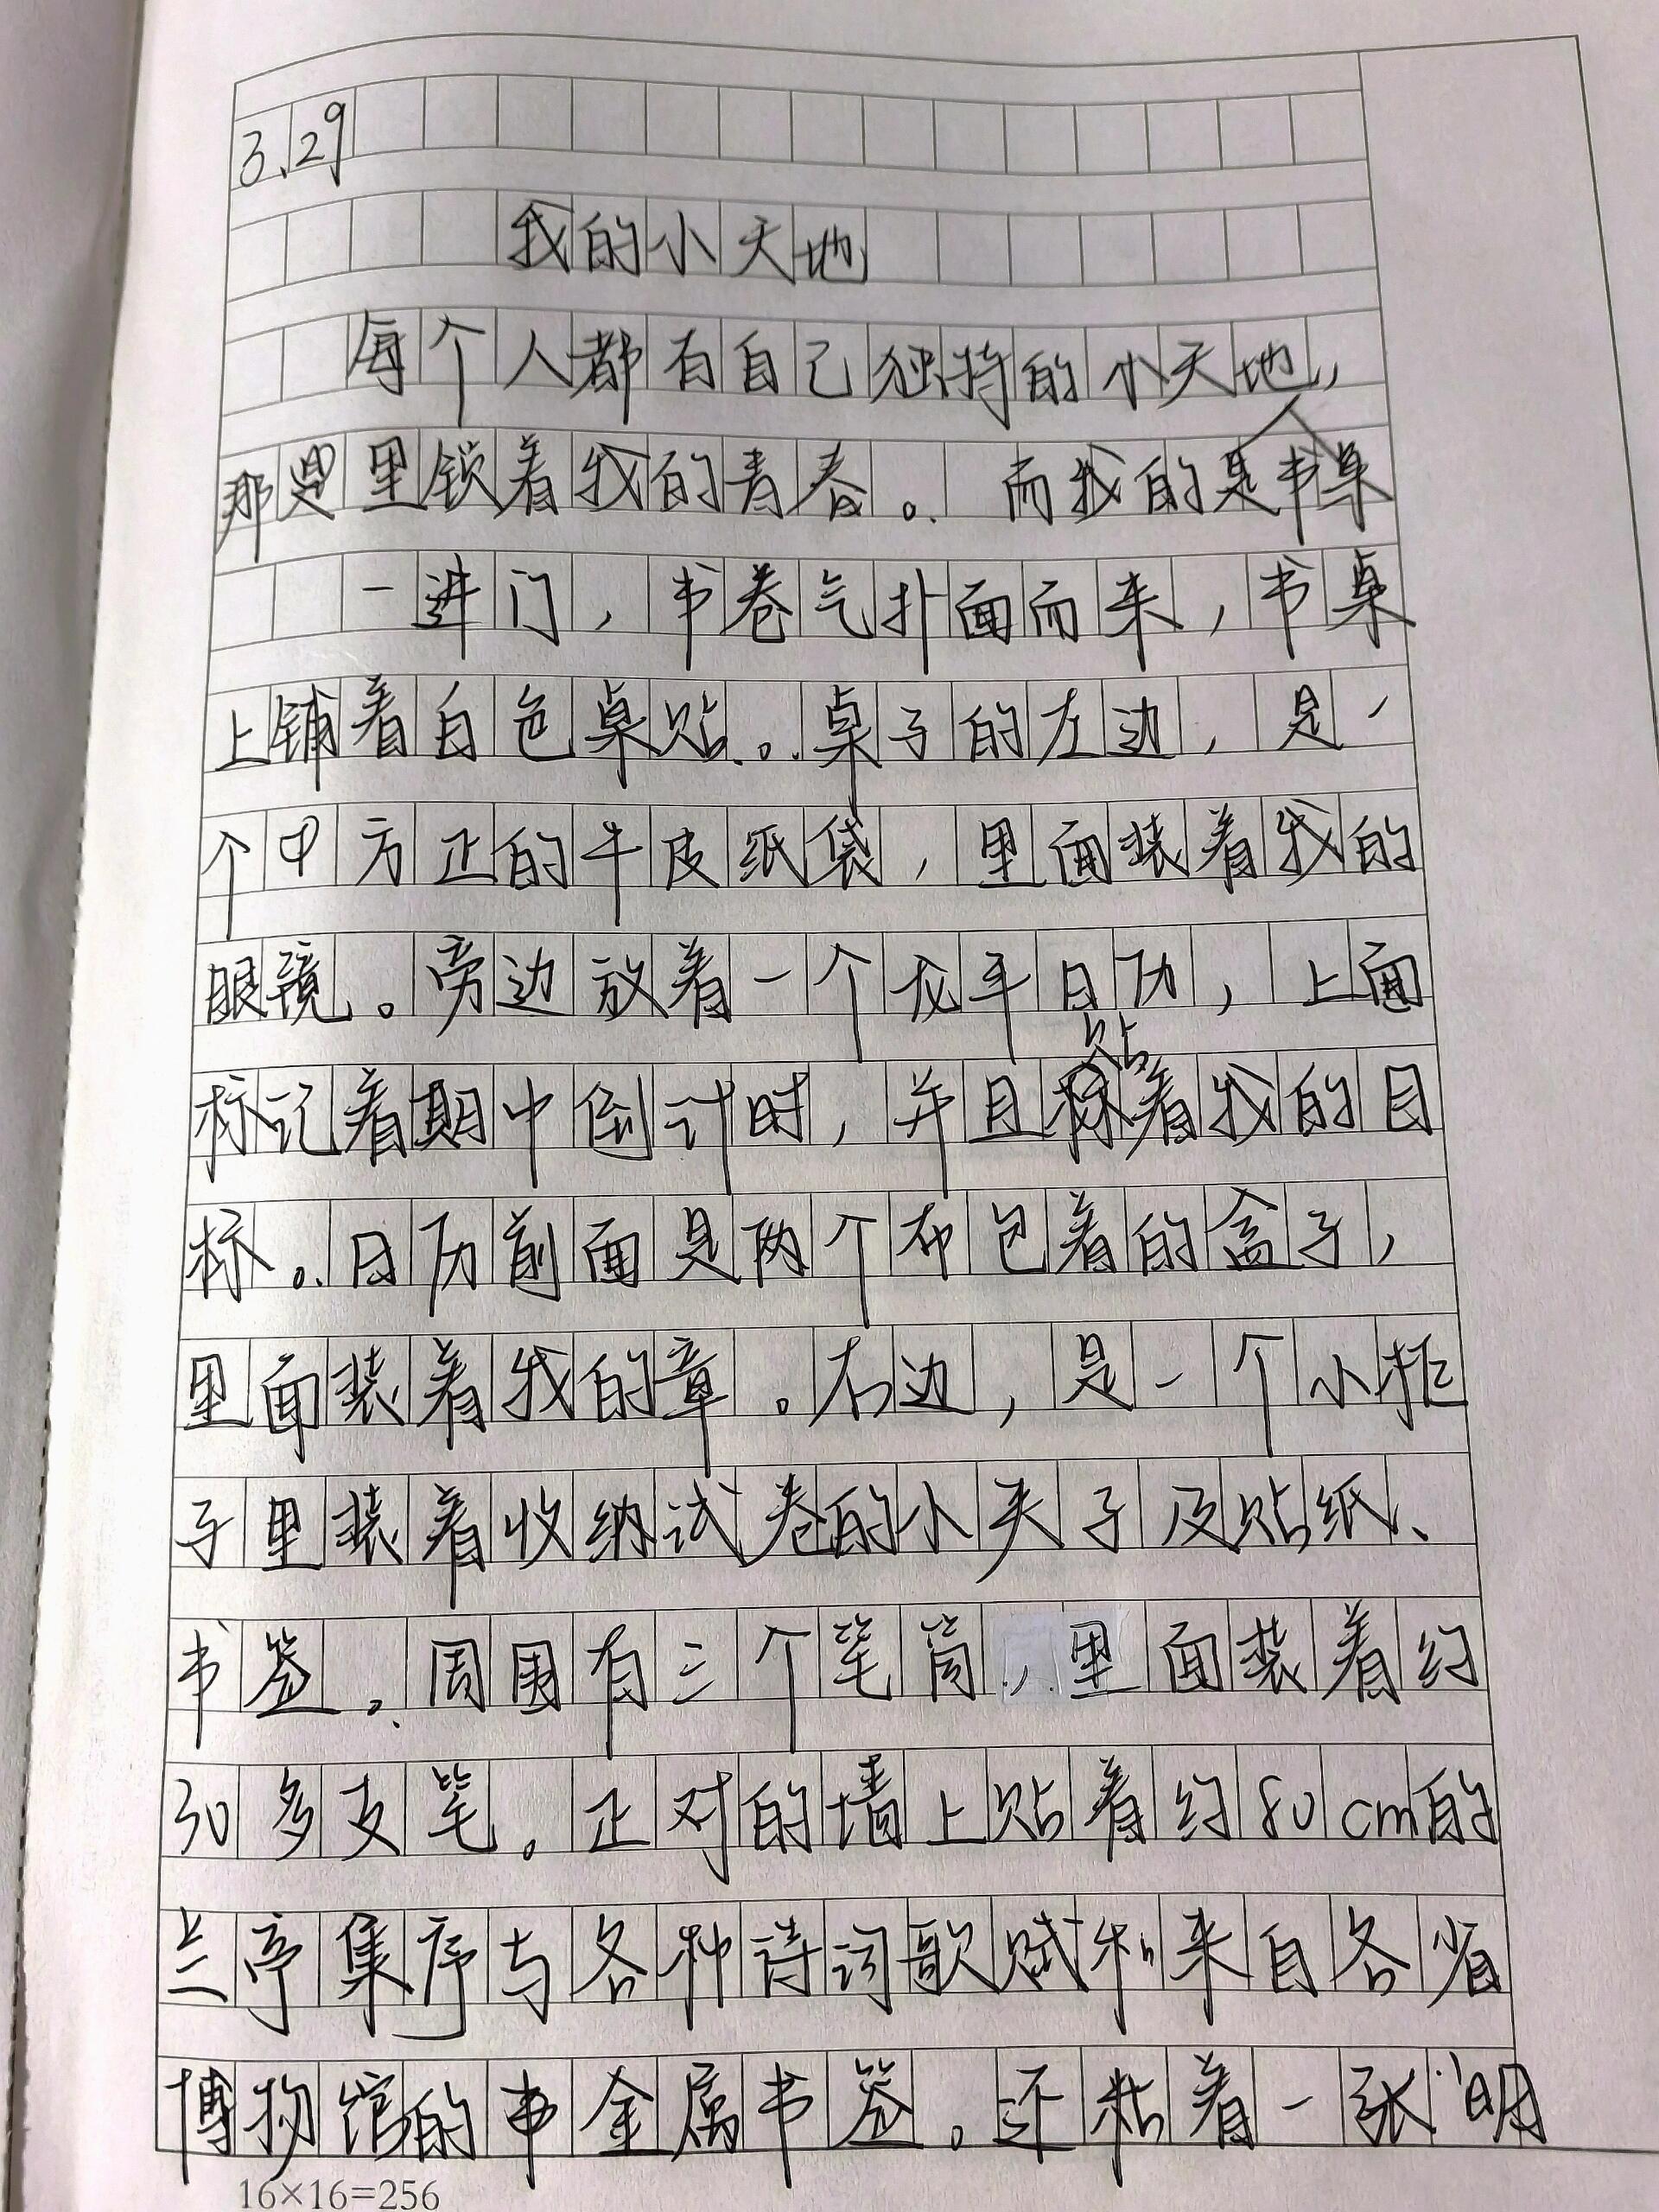 3.29
我的小天地
每个人都有自己独特的小天地，
那是里锁着我的青春。而我的是书桌
一进门，书卷气扑面而来，书桌
上铺着白色桌贴。桌子的左边，是一
个方正的牛皮纸袋，里面装着我的
眼镜。旁边放着一个龙年日历，上面
贴
标记着期中倒计时，并且标着我的目
标。日历前面是两个布包着的盒子，
里面装着我的章。右边，是一个小柜
子里装着收纳试卷的小夹子及贴纸、
书签。周围有三个笔筒，里面装着约
30多支笔。正对的墙上贴着约80cm的
兰亭集序与各种诗词歌赋和来自各省
博物馆的金属书签。还粘着一张“明
16×16=256